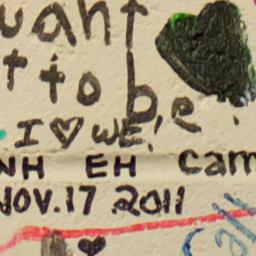 want
to be
I ♡ WE!
NH EH Cam
NOV. 17 2011
Call